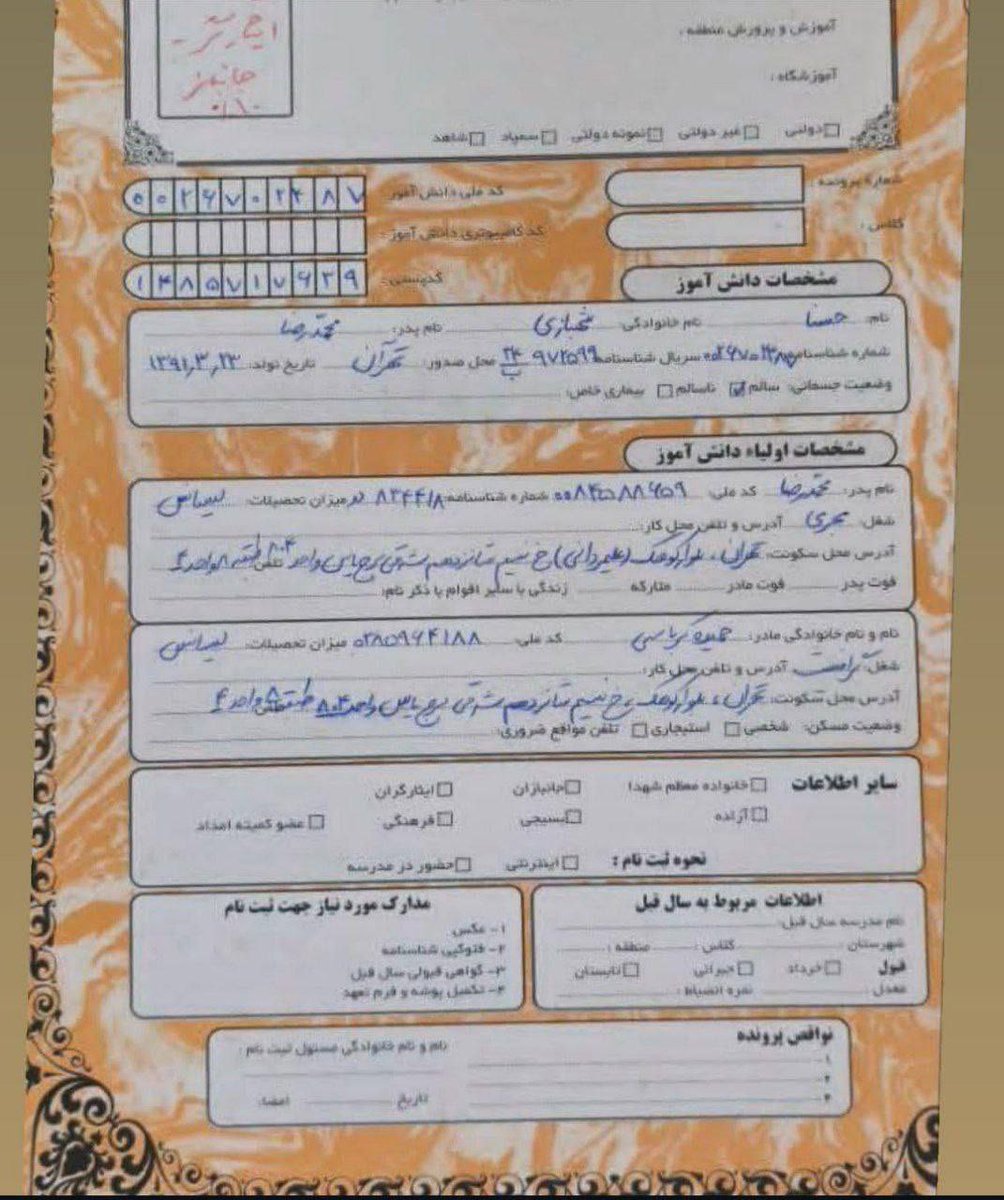 ایثارگر -
جانباز
٪۱۰
آموزش و پرورش منطقه :
آموزشگاه :
دولتی غیر دولتی نمونه دولتی سمپاد شاهد
شماره پرونده :
کلاس :
کد ملی دانش آموز: ۰۰۲۶۷۰۲۴۸۷
کد کامپیوتری دانش آموز :
کدپستی: ۱۴۸۵۷۱۷۶۳۹
مشخصات دانش آموز
نام: حسنا نام خانوادگی: نام پدر: محمدرضا
شماره شناسنامه: سریال شناسنامه: ۹۷۲۵۹۹ ۲۴/ب محل صدور: تهران تاریخ تولد: ۱۳۹۱,۳,۲۳
وضعیت جسمانی: سالم ناسالم بیماری خاص:
مشخصات اولیاء دانش آموز
نام پدر: محمدرضا کد ملی: شماره شناسنامه: میزان تحصیلات: لیسانس
شغل: آدرس و تلفن محل کار:
آدرس محل سکونت: تهران، خ نسیم شانزدهم شرقی برج یاس واحد تلفن:
فوت پدر فوت مادر متارکه زندگی با سایر اقوام با ذکر نام:
نام و نام خانوادگی مادر: حمیده کرباسی کد ملی: میزان تحصیلات: لیسانس
شغل: آدرس و تلفن محل کار:
آدرس محل سکونت: تهران، خ نسیم شانزدهم شرقی برج یاس واحد ۸۰۴ طبقه ۸ واحد ۴
وضعیت مسکن: شخصی استیجاری تلفن مواقع ضروری:
سایر اطلاعات خانواده معظم شهدا جانبازان ایثارگران
آزاده بسیجی فرهنگی عضو کمیته امداد
نحوه ثبت نام : اینترنتی حضور در مدرسه
اطلاعات مربوط به سال قبل
نام مدرسه سال قبل:
شهرستان کلاس : منطقه :
قبول خرداد جبرانی تابستان
معدل : نمره انضباط :
مدارک مورد نیاز جهت ثبت نام
۱- عکس
۲- فتوکپی شناسنامه
۳- گواهی قبولی سال قبل
۴- تکمیل پوشه و فرم تعهد
نواقص پرونده
۱-
۲-
۳-
نام و نام خانوادگی مسئول ثبت نام :
تاریخ امضاء